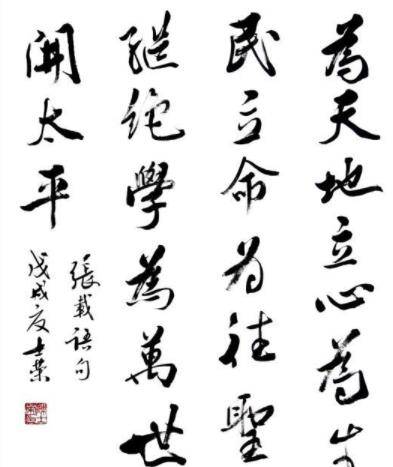 為天地立心為生
民立命为往聖
继绝學為萬世
開太平
張載语句
戊戌夏士荣